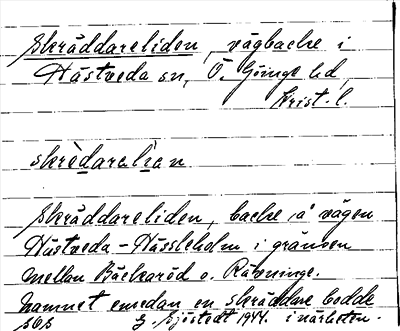 Skräddareliden, vägbacke i
Hästveda sn, Ö. Göinge hd,
Krist. l.
skrèdaralian
Skräddareliden, backe å vägen
Hästveda - Hässleholm i gränsen
mellan Bäckaröd o. Röinge.
namnet emedan en skräddare bodde
i närheten.
G. Sjöstedt 1944.